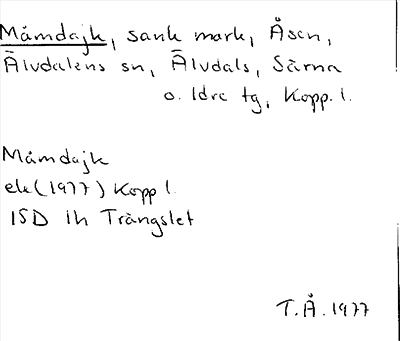 Måmdajk, sank mark, Åsen,
Älvdalens sn, Älvdals, Särna
o. Idre tg, Kopp. l.
Måmdajk
ek (1977) Kopp l.
15D 1h Trängslet
T.Å. 1977